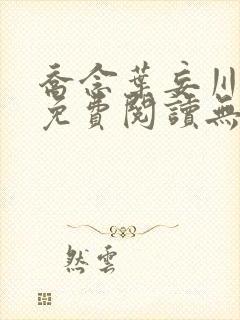 喬念葉妄川
免費閱讀無
然雲